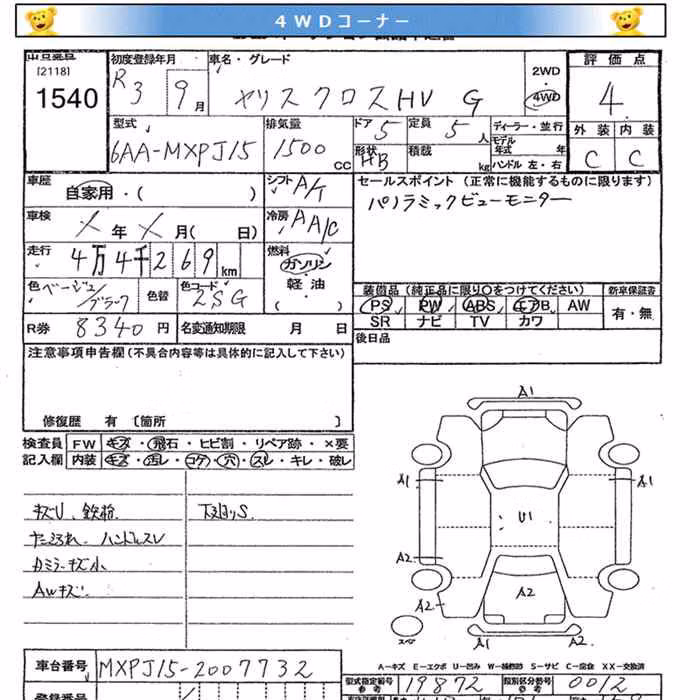 4WDコーナー
出品番号 初度登録年月 車名・グレード 2WD 評価点
[2118]
1540 R3 9月 ヤリスクロスHV G 4WD 4
型式 排気量 ドア 5 定員 5人 ディーラー・並行 外装 内装
モデル年式 年
6AA-MXPJ15 1500CC 形状 HB 積載 kg ハンドル 左・右 C C
車歴 自家用・( ) シフト A/T セールスポイント (正常に機能するものに限ります)
車検 X年X月( 日) 冷房 AA/C パノラミックビューモニター
走行 4万4千269km 燃料 ガソリン
軽油
( )
色 ベージュ/ブラック 色替 色コード 2SG 装備品 (純正品に限り○をつけてください) 新車保証書
PS PW ABS エアB AW 有・無
R券 8340円 名変通知期限 月 日 SR ナビ TV カワ
注意事項申告欄(不具合内容等は具体的に記入して下さい) 後日品
修復歴 有 〔箇所 〕
検査員 FW キズ・飛石・ヒビ割・リペア跡・×要
記入欄 内装 キズ・汚レ・コゲ・穴・スレ・キレ・破レ
キズU、鉄粉 下廻りS
ハンドルスレ
ミラーキズ小
AWキズ
A1
A1 A1
U1
A2 A2
A2 A2
スペ A1 A2
A-キズ E-エクボ U-凹み W-補修跡 S-サビ C-腐食 XX-交換済
車台番号 MXPJ15-2007732 型式指定番号 19872 類別区分番号 0012
参考 参考